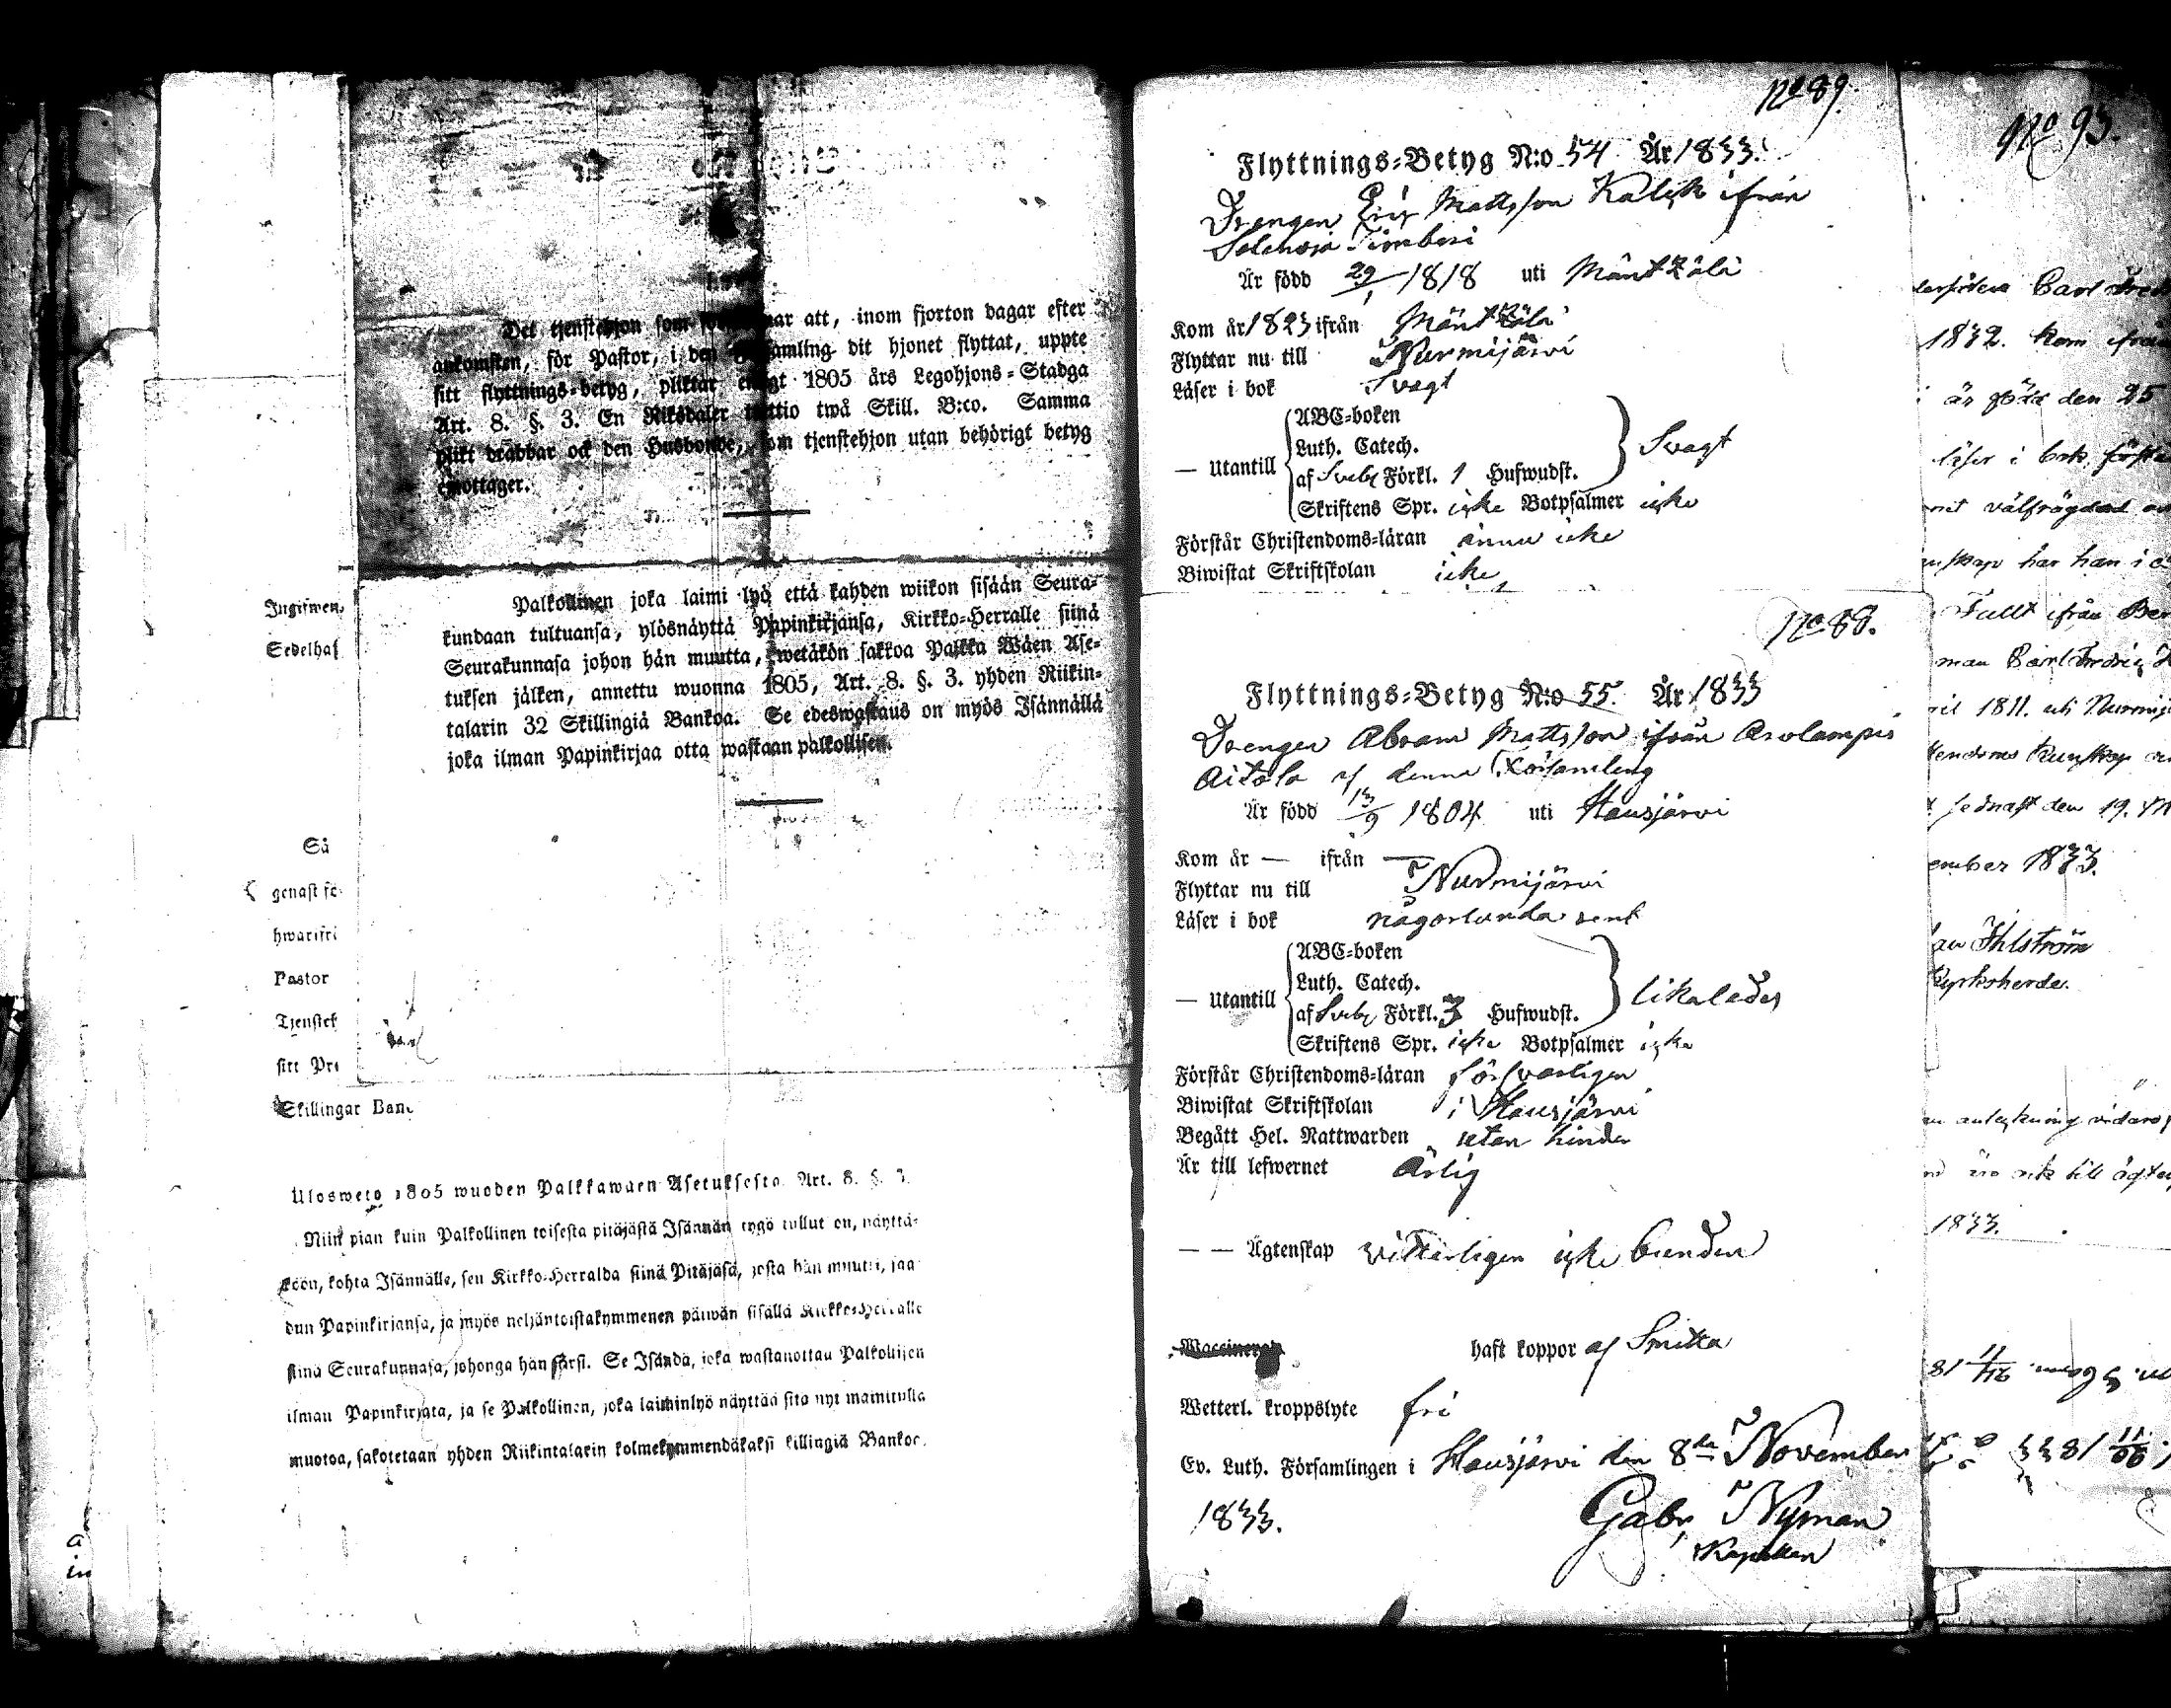 Det tjenstehjon som att, inom fjorton dagar efter
ankomsten, för Pastor, i den dit hjonet flyttat, uppte
sitt flyttnings-betyg, pliktar enligt 1805 års Legohjons-Stadga
Art. 8. §. 3. En Riksdaler trettio twå Skill. B:co. Samma
plikt drabbar ock den Husbonde, som tjenstehjon utan behörigt betyg
emottager.
Palkollinen joka laimi lyö että kahden wiikon sisään Seura-
kundaan tultuansa, ylösnäyttä Papinkirjansa, Kirkko-Herralle siinä
Seurakunnasa johon hän muutta, wetäkön sakkoa Palkka Wäen Ase-
tuksen jälken, annettu wuonna 1805, Art. 8. §. 3. yhden Riikin-
talarin 32 Skillingiä Bankoa. Se edeswastaus on myös Isännällä
joka ilman Papinkirjaa otta wastaan palkollisen.
Sedelhaf
Så
genast fö
hwarifrå
Pastor
Tjenstek
sitt Pre
Skillingar Banc
Ulosweto 1805 wuoden Palkkawäen Asetuksesta. Art. 8. §. 3.
Niin pian kuin Palkollinen toisesta pitäjästä Isännän tygö tullut on, näyttä-
köön, kohta Isännälle, sen Kirkko-Herralda siinä Pitäjäsä, josta hän muutti, saa
dun Papinkirjansa, ja myös neljäntoistakymmenen päiwän sisällä Kirkko-Herralle
siinä Seurakunnasa, johonga hän särsi. Se Isändä, joka wastanottau Palkollisen
ilman Papinkirjata, ja se Palkollinen, joka laiminlyö näyttää sitä nyt mainitulla
muotoa, sakotetaan yhden Riikintalarin kolmekymmendäkaksi killingiä Bankoc.
No 89.
Flyttnings-Betyg N:o 54 År 1833.
Drengen Eric Mattsson Kalck ifrån
Är född 29/1 1818 uti Mäntzälä
Kom år 1823 ifrån Mäntzälä
Flyttar nu till Nurmijärvi
Läser i bok Svagt
— Utantill
ABC-boken
Luth. Catech.
af Sveb. Förkl. 1 Hufwudst.
Svagt
Skriftens Spr. icke Botpsalmer icke
Förstår Christendoms-läran ännu icke
Biwistat Skriftskolan icke
No 88.
Flyttnings-Betyg N:o 55. År 1833
Drengen Abram Mattsson ifrån Arolampis
Aitola af denna Församling
Är född 13/9 1804 uti Hausjärvi
Kom år — ifrån —
Flyttar nu till Nurmijärvi
Läser i bok någorlunda rent
— Utantill
ABC-boken
Luth. Catech.
af Sveb. Förkl. 3 Hufwudst.
likaledes
Skriftens Spr. icke Botpsalmer icke
Förstår Christendoms-läran försvarligen
Biwistat Skriftskolan i Hausjärvi
Begått Hel. Nattwarden utan hinder
Är till lefwernet Ärlig
— — Ägtenskap vitterligen icke bunden
Waccinerad haft koppor af Smitta
Wetterl. kroppslyte fri
Ev. Luth. Församlingen i Hausjärvi den 8de November
1833.
Gabr. Nyman
Kapellan
No 93.
1832. kom ifrån
är född den 25
läser i bok
har han i
Fullt ifrån Ber
1811. uti Nurmijä
den 19.
ember 1833.
Ahlström
Kyrkoherde.
1833.